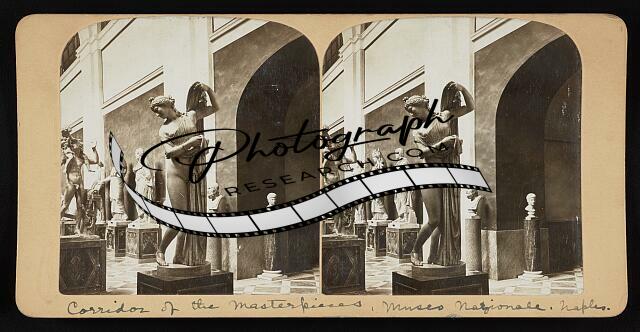 Photograph
RESEARCH.COM
Corridor of the Masterpieces, Museo Nazionale. Naples.